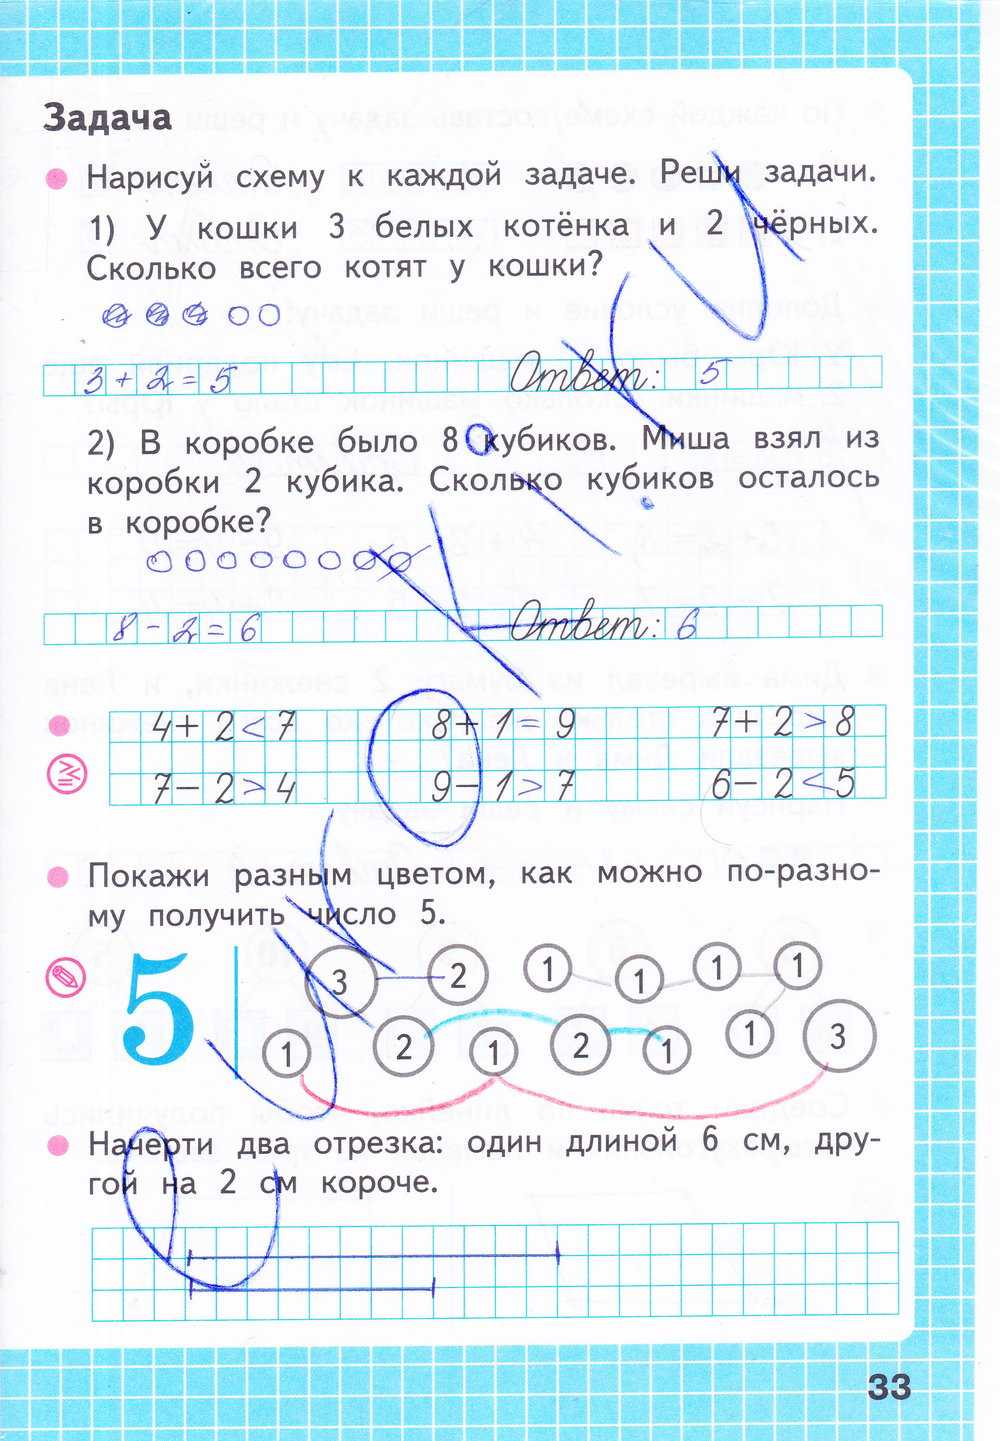 Задача
Нарисуй схему к каждой задаче. Реши задачи.
1) У кошки 3 белых котёнка и 2 чёрных.
Сколько всего котят у кошки?
3 + 2 = 5 Ответ: 5
2) В коробке было 8 кубиков. Миша взял из
коробки 2 кубика. Сколько кубиков осталось
в коробке?
8 - 2 = 6 Ответ: 6
4 + 2 < 7 8 + 1 = 9 7 + 2 > 8
7 - 2 > 4 9 - 1 > 7 6 - 2 < 5
Покажи разным цветом, как можно по-разно-
му получить число 5.
5
3 2 1 1 1 1
1 2 1 2 1 1 3
Начерти два отрезка: один длиной 6 см, дру-
гой на 2 см короче.
33